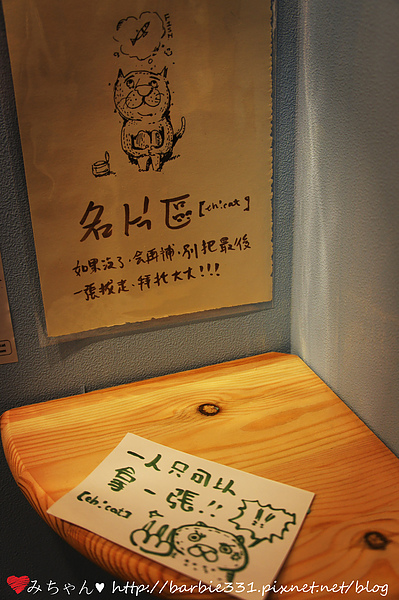 名片區【chicat】
如果沒了，會再補，別把最後
一張拔走、拜托大大!!!
一人只可以
拿一張!!
【chicat】
!!
♥みちゃん♥ http://barbie331.pixnet.net/blog